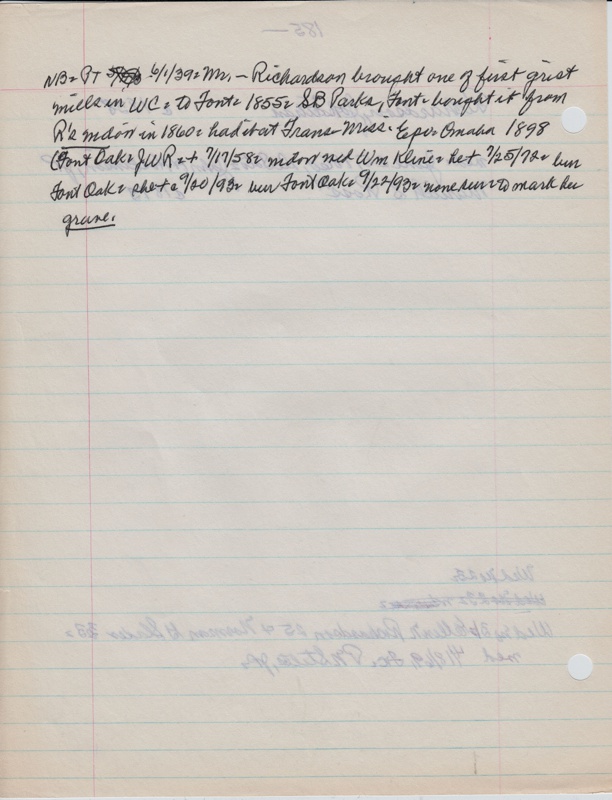 NB= PT 6/1/39= Mr. — Richardson brought one of first grist
mills in WC= to Font= 1855= SB Parks, Font= bought it from
R's mdow in 1860= had it at Trans-Miss= Expo= Omaha 1898
(Font Oak= JWR= + 7/17/58= mdow med Wm Kline= he + 7/25/72= bur
Font Oak= she + 9/20/93= bur Font Oak= 9/22/93= none sur= to mark her
grave.